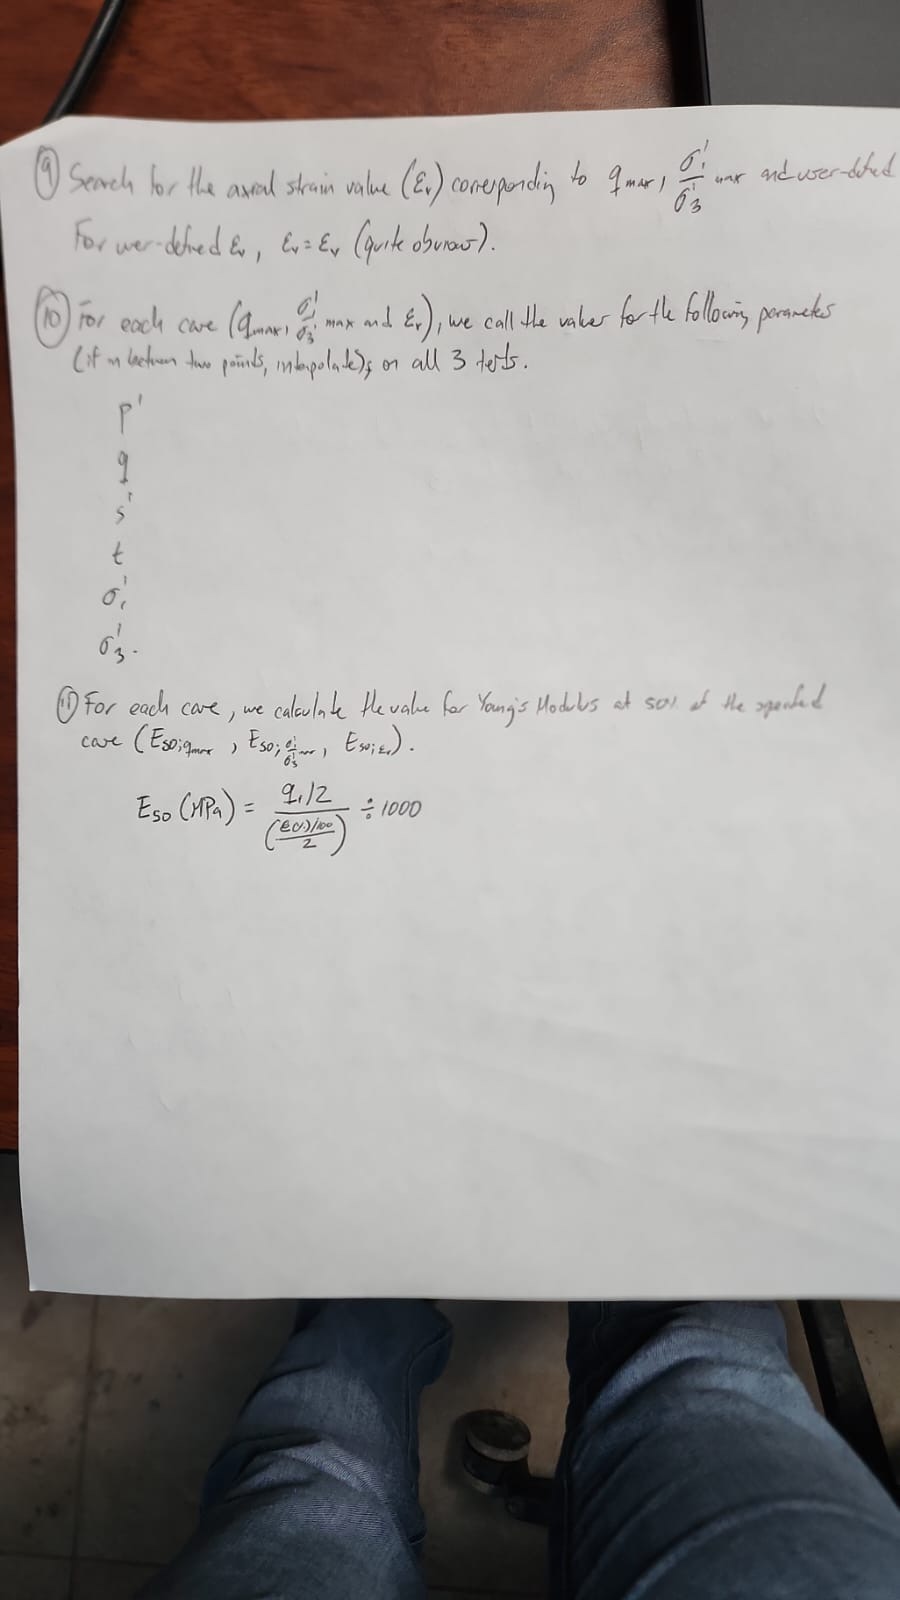 ⑨ Search for the axial strain value (εᵥ) corresponding to q max, σ'₁/σ'₃ max and user-defined
For user-defined εᵥ, εᵥ = εᵥ (quite obvious).
⑩ For each case (qmax, σ'₁/σ'₃ max and εᵥ), we call the values for the following parameters
(if in between two points, interpolate); on all 3 tests.
p'
q
s'
t
σ'₁
σ'₃.
⑪ For each case, we calculate the value for Young's Modulus at 50% of the specified
case (E50;qmax, E50;σ'₁/σ'₃ max, E50;εᵥ).
E50 (MPa) = q,/2 / ((ε(%)/100)/2) ÷ 1000